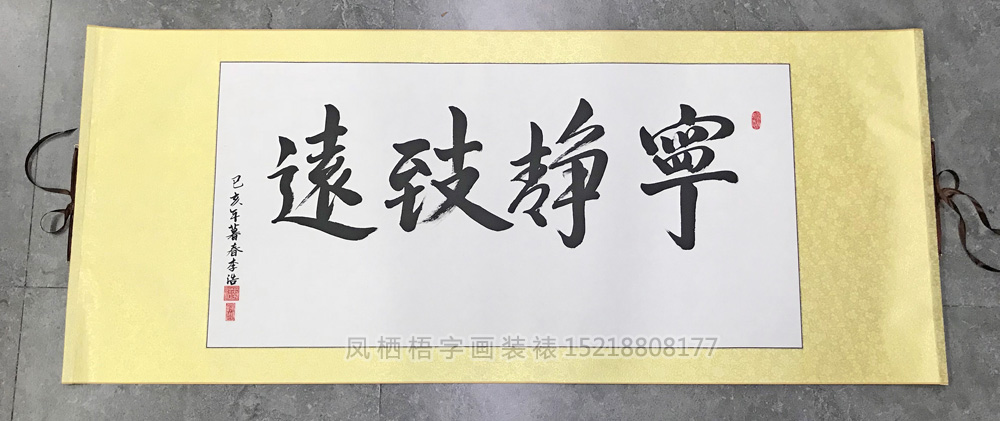 寧靜致遠
己亥年暮春李浩
凤栖梧字画装裱15218808177